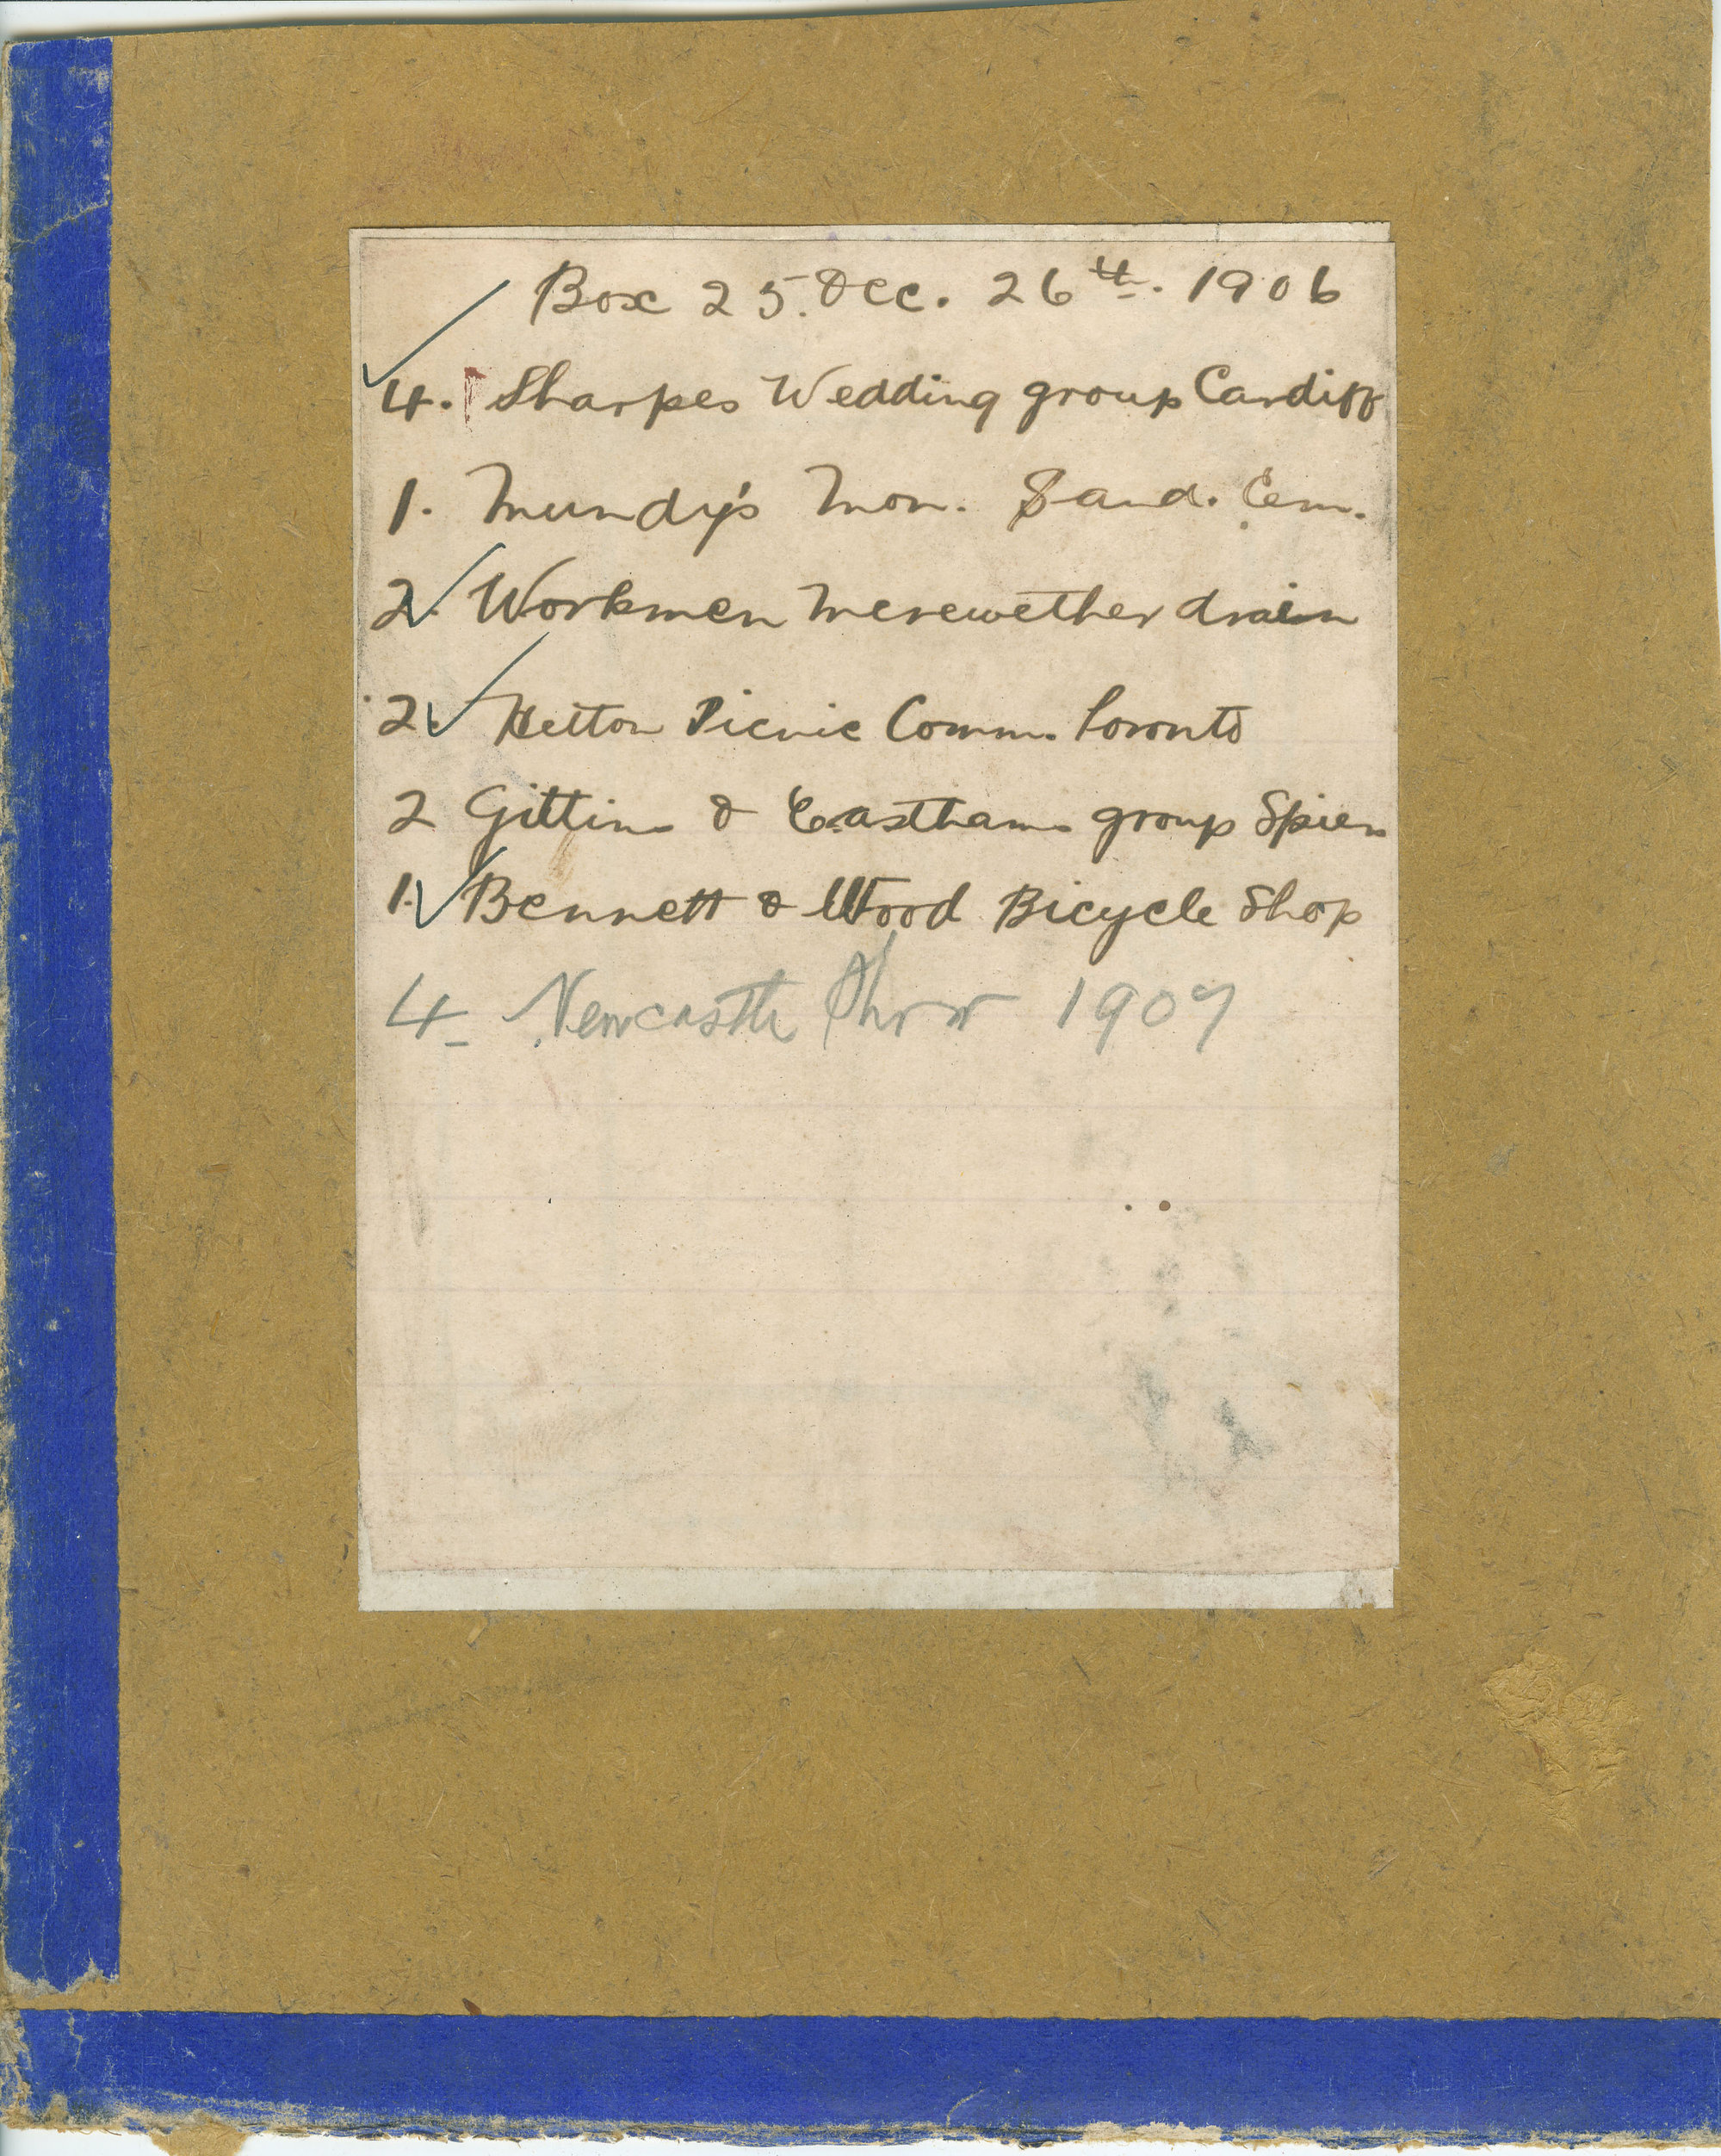 Box 25. Dec. 26th. 1906
4. Sharpes Wedding group Cardiff
1. Mundy's Mon. Sand. Cem.
2. Workmen Merewether drain
2. Hetton Picnic Comm. Toronto
2 Gittins & Easthams group Spiers
1. Bennett & Wood Bicycle Shop
4 Newcastle Show 1907